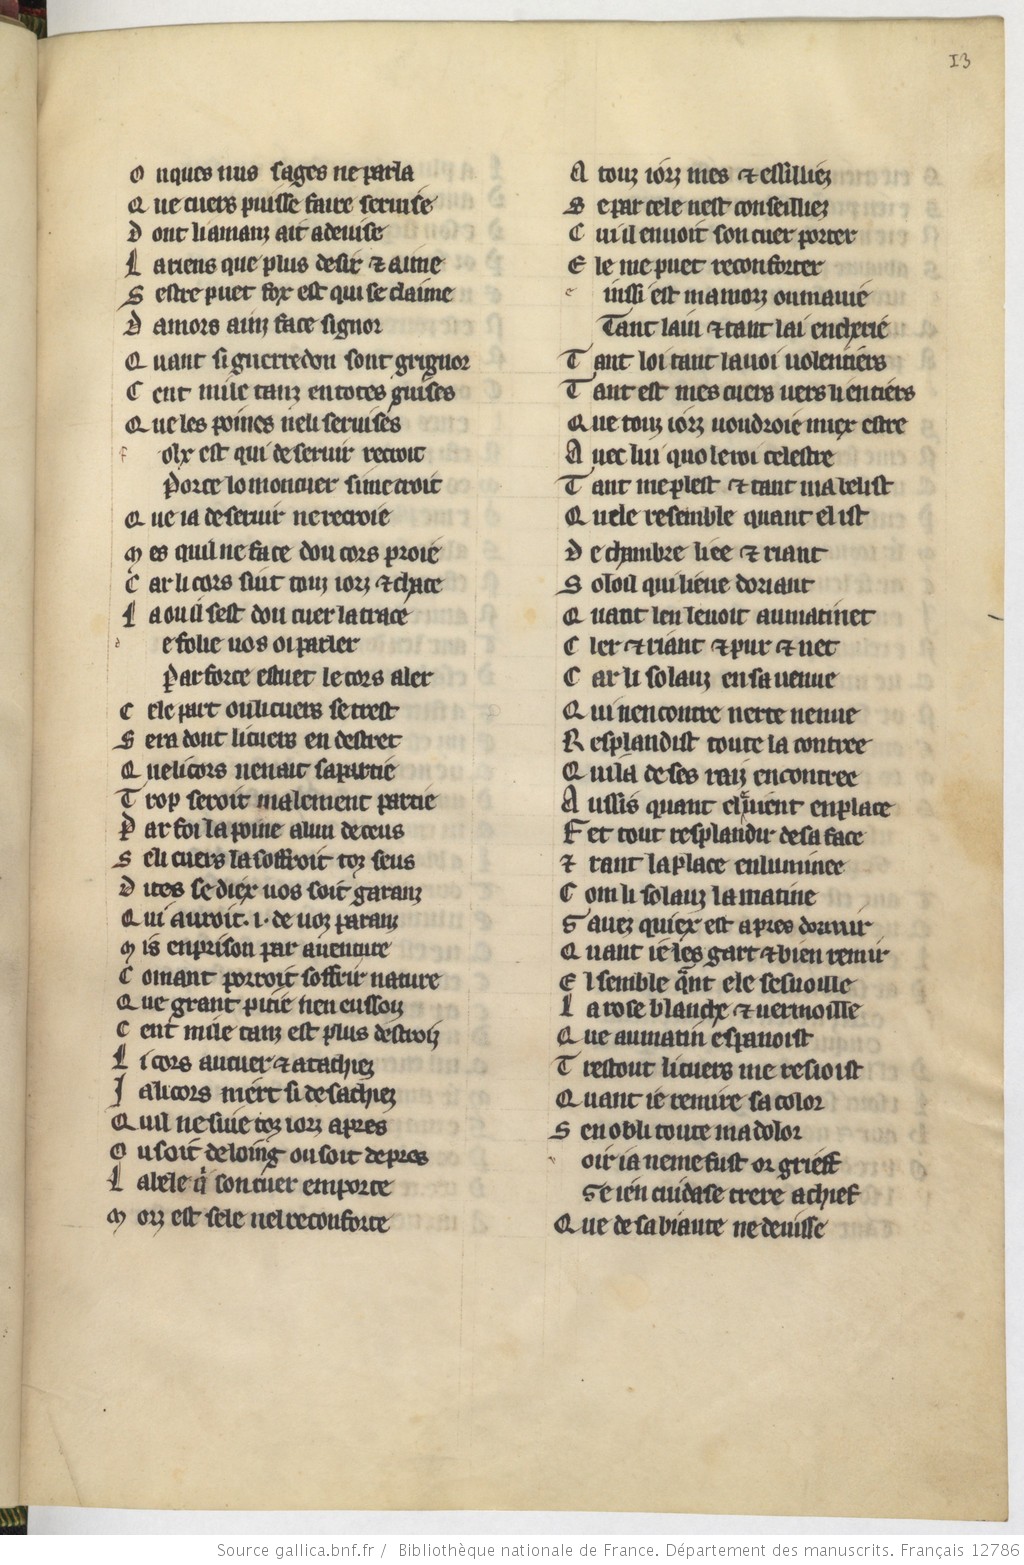 13
O nques nus sages ne parla
Q ue cuers puisse faire seruise
D ont li amanz ait a deuise
L a riens que plus desir & aime
S estre puet fox est qui se claime
D amors ainz face signor
Q uant si guerredon sont grignor
C ent mile tanz en totes guises
Q ue les poines ne li seruises
f olx est qui de seruir recroit
Porce lo mon cuer si me croit
Q ue ia de seruir ne recroie
M es quil ne face dou cors proie
C ar li cors suit touz iorz & chace
L a ou il sest dou cuer la trace
e folie uos oi parler
Par force estuet le cors aler
C ele part ou li cuers se trest
S era dont li cuers en destret
Q ue li cors nen ait sa partie
T rop seroit malement partie
P ar foi la poine a lun de ceus
S e li cuers la soffroit toz seus
D ites se diex uos soit garanz
Q ui auroit .i. de uoz paranz
M is en prison par auenture
C omant porroit soffrir nature
Q ue grant pitie nen eussoiz
C ent mile tanz est plus destroiz
L i cors au cuer & atachiez
J a li cors niert si desachiez
Q uil ne siue toz iorz apres
O u soit de loing ou soit de pres
L a cele q̃ son cuer emporte
M orz est sele nel reconforte
A touz iorz mes & essilliez
S e par cele nest conseilliez
C ui il enuoit son cuer porter
E le me puet reconforter
e inssi est ma morz ou ma uie
Tant laim & tant lai encherie
T ant loi tant la uoi uolentiers
T ant est mes cuers uers li entiers
Q ue touz iorz uoudroie miex estre
A uec lui quo le roi celestre
T ant me plest & tant ma belist
Q uele resemble quant el ist
D e chambre liee & riant
S oloil qui lieue dor iant
Q uant len le uoit au matinet
C ler & riant & pur & net
C ar li solauz en sa uenue
Q ui nen contre nerte nenue
R esplandist toute la contree
Q uil a de ses raiz encontree
A ussis quant el uient en place
F et tout resplandir de sa face
& tant la place enluminee
C om li solauz la matine
S auez quiex est apres dormir
Q uant ie les gart & bien remir
E l semble q̃nt ele sesuoille
L a rose blanche & uermoille
Q ue au matin espanoist
T restout li cuers me resioist
Q uant ie remire sa color
S en obli toute ma dolor
oir ia ne me fust or grieff
Se ien cuidase trere a chief
Q ue de sa biaute ne deuisse
Source gallica.bnf.fr / Bibliothèque nationale de France. Département des manuscrits. Français 12786